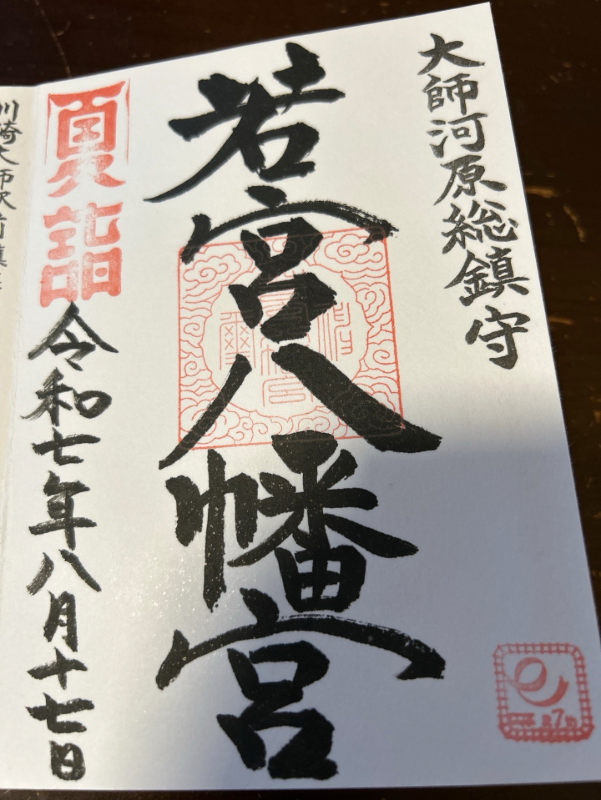 大師河原総鎮守
若宮八幡宮
夏詣
令和七年八月十七日
第7番
川崎大師駅前鎮